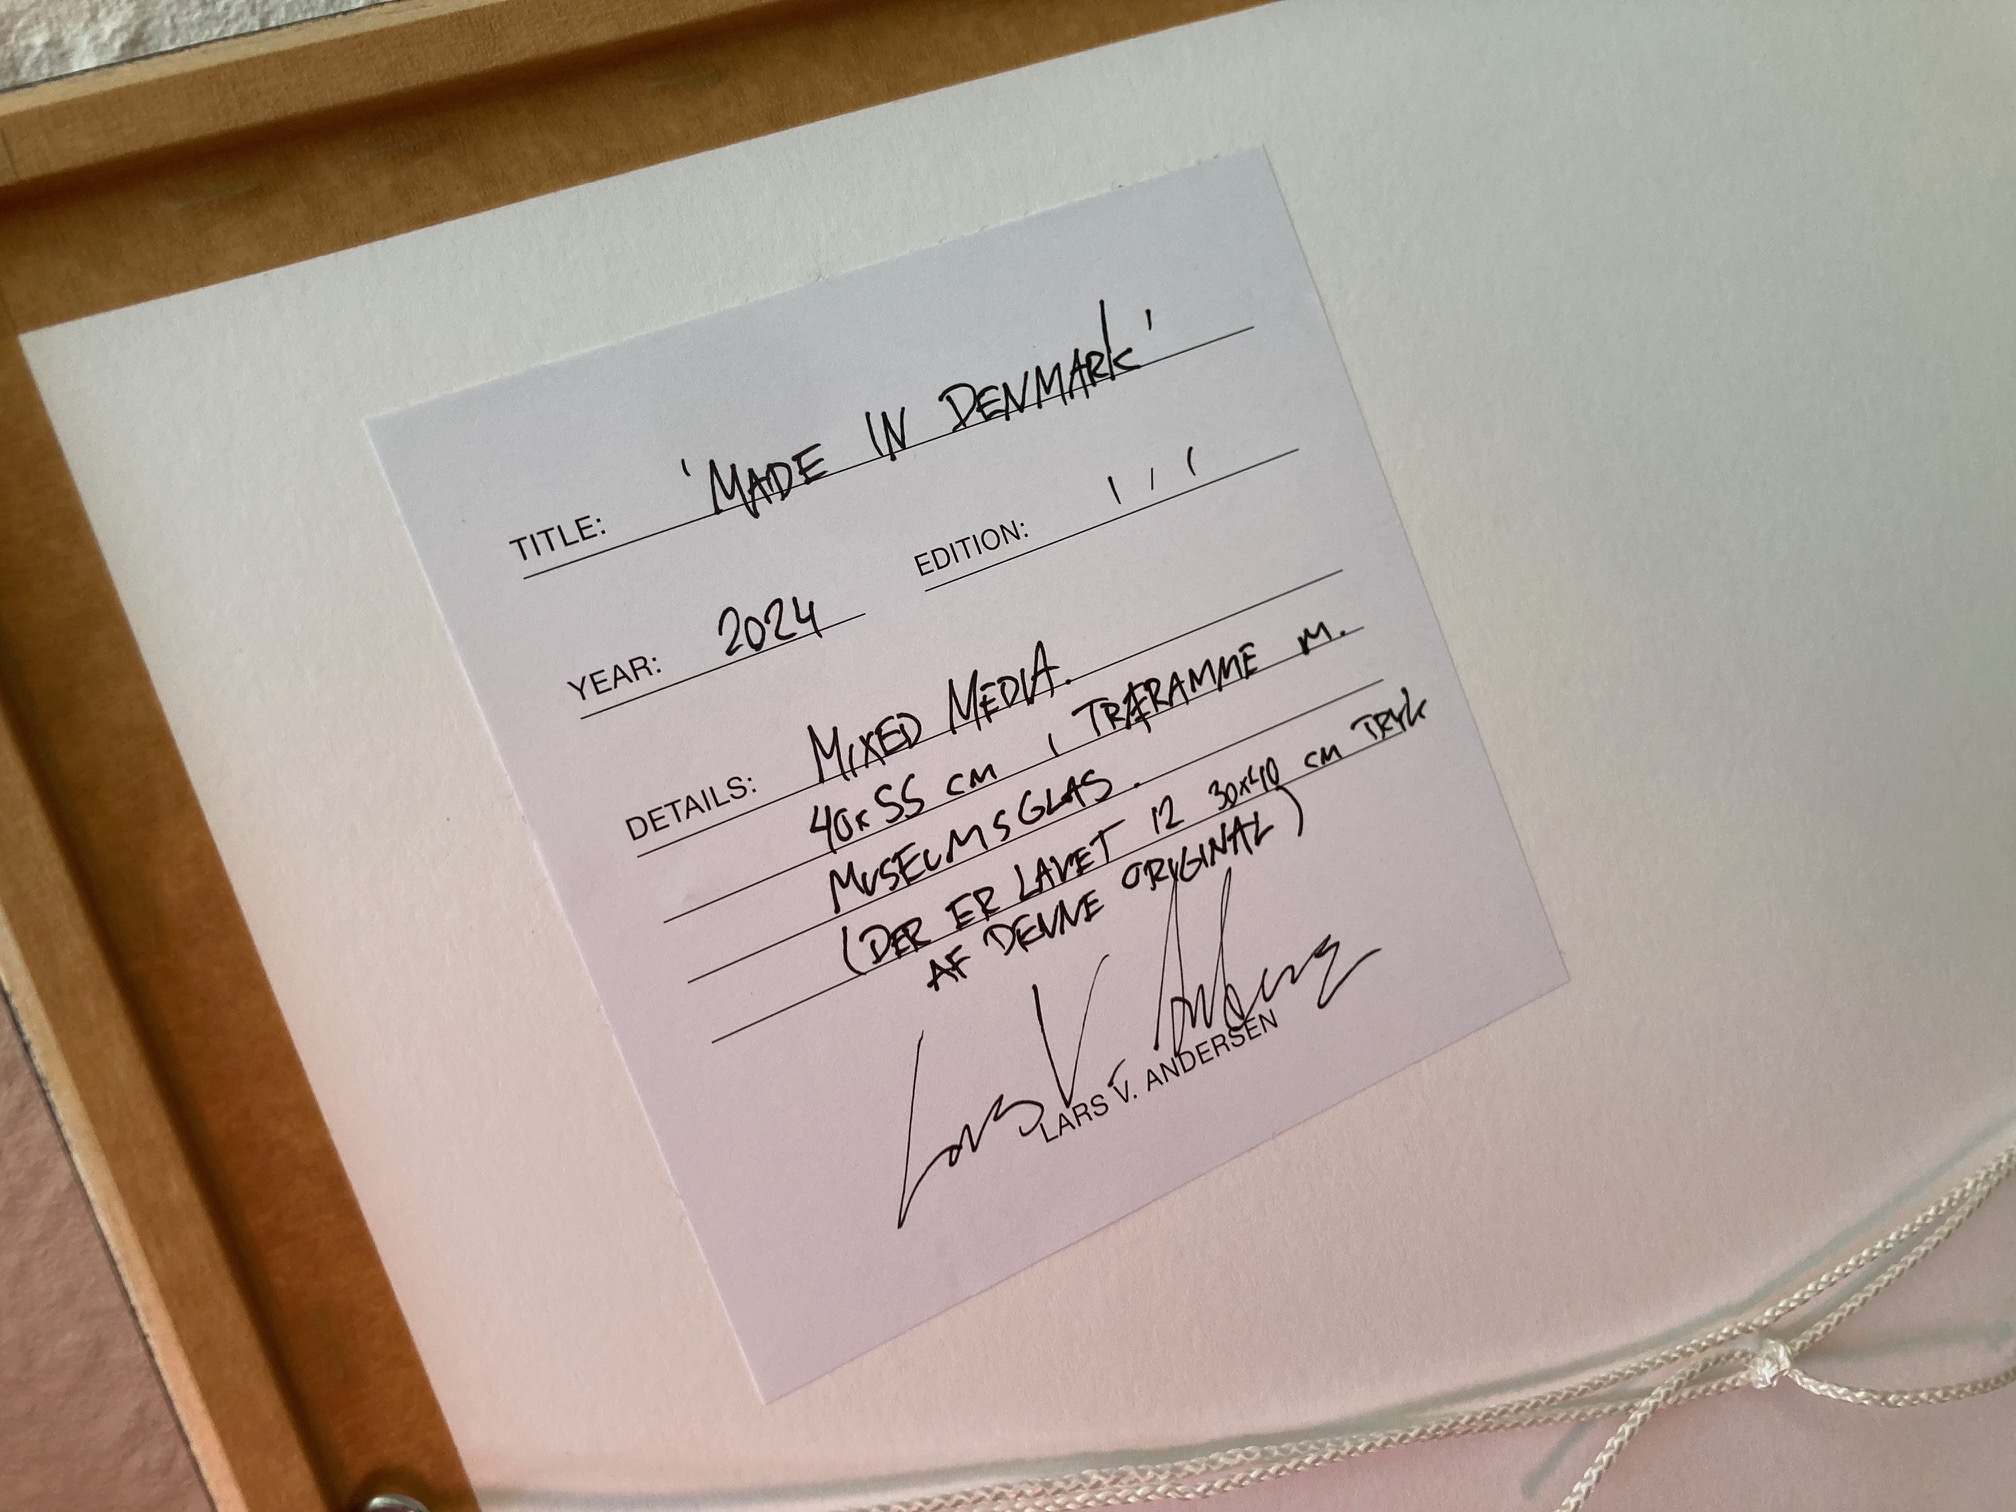 TITLE: 'MADE IN DENMARK'
YEAR: 2024 EDITION: 1/1
DETAILS: MIXED MEDIA.
40x55 cm i TRÆRAMME M.
MUSEUMSGLAS.
(DER ER LAVET 12 30x40 cm TRYK
AF DENNE ORIGINAL)
Lars V Andersen
LARS V. ANDERSEN